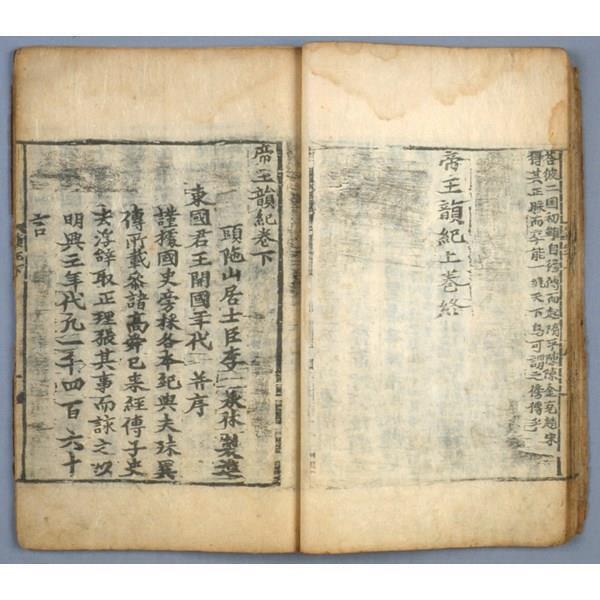 答彼二国初雖自傳而起隋平陳金克趙宋
得其正脉而卒能一統天下烏可謂之僞傳乎
帝王韻紀上卷終
帝王韻紀卷下
頭陁山居士臣李承休製進
東國君王開國年代 并序
謹據國史旁採各本紀與夫殊異
傳所載叅諸高舜已来經傳子史
去浮辞取正理張其事而詠之以
明興亡年代凡一千四百六十
言